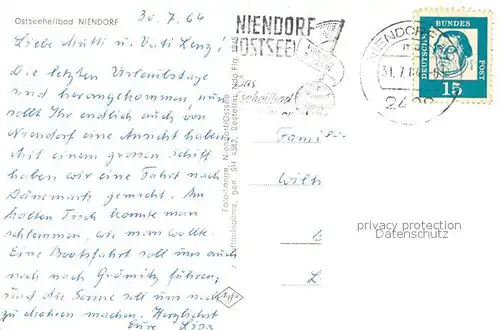 Ostseeheilbad NIENDORF
30.7.64
Liebe Mutti u. Vati Lenz!
Die letzten Urlaubstage
sind herangekommen, nun
sollt Ihr endlich auch von
Niendorf eine Ansicht haben.
Mit einem grossen Schiff
haben wir eine Fahrt nach
Dänemark gemacht. Am
kalten Tisch konnte man
schlemmen, wie man wollte.
Eine Bootsfahrt soll uns auch
noch nach Grömitz führen,
und die Sonne soll uns noch
zu Mohren machen. Herzlichst
Eure
Foto-Lange, Niendorf/Ostsee
gen. SH 4382, Bestellnr.
Agfa
NIENDORF
OSTSEE
Das
NIENDORF
31.7.
DEUTSCHE BUNDESPOST
15
Fami
Wilh
L
privacy protection
Datenschutz